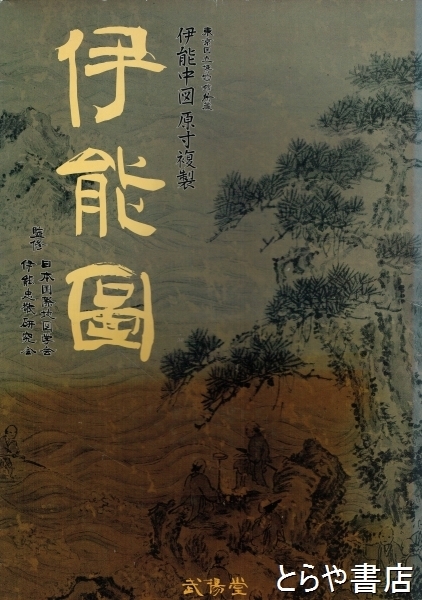 東京国立博物館所蔵
伊能中図 原寸複製
伊能圖
監修
日本国際地図学会
伊能忠敬研究会
武揚堂
とらや書店